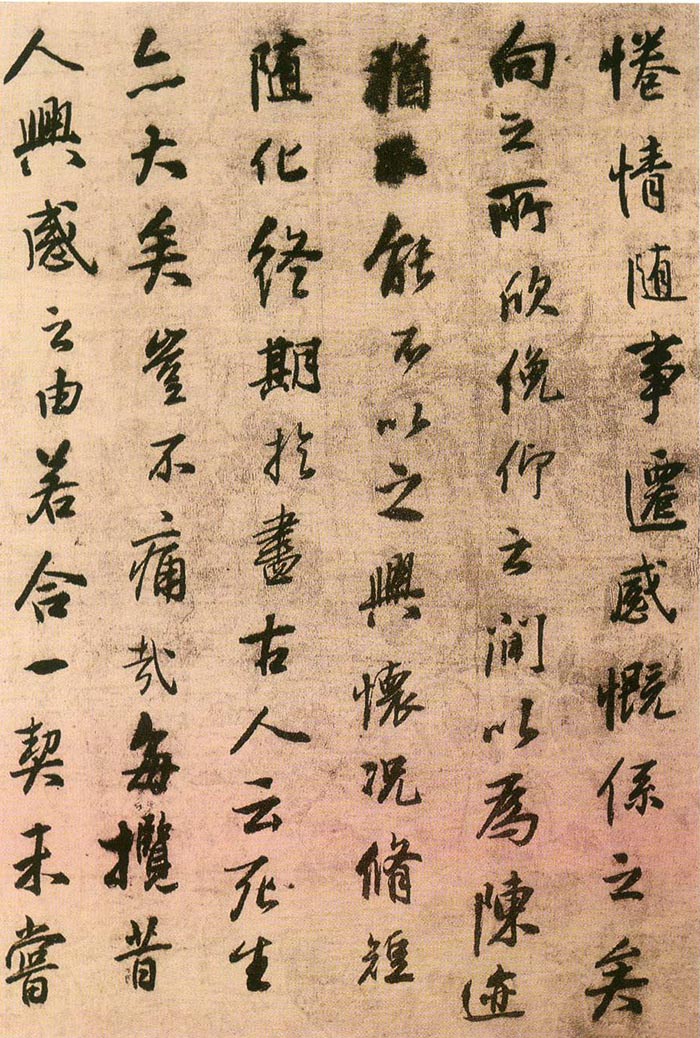 惓情随事遷感慨係之矣
向之所欣俛仰之間以為陳迹
猶不能不以之興懷況脩短
随化終期於盡古人云死生
亦大矣豈不痛哉每攬昔
人興感之由若合一契未嘗